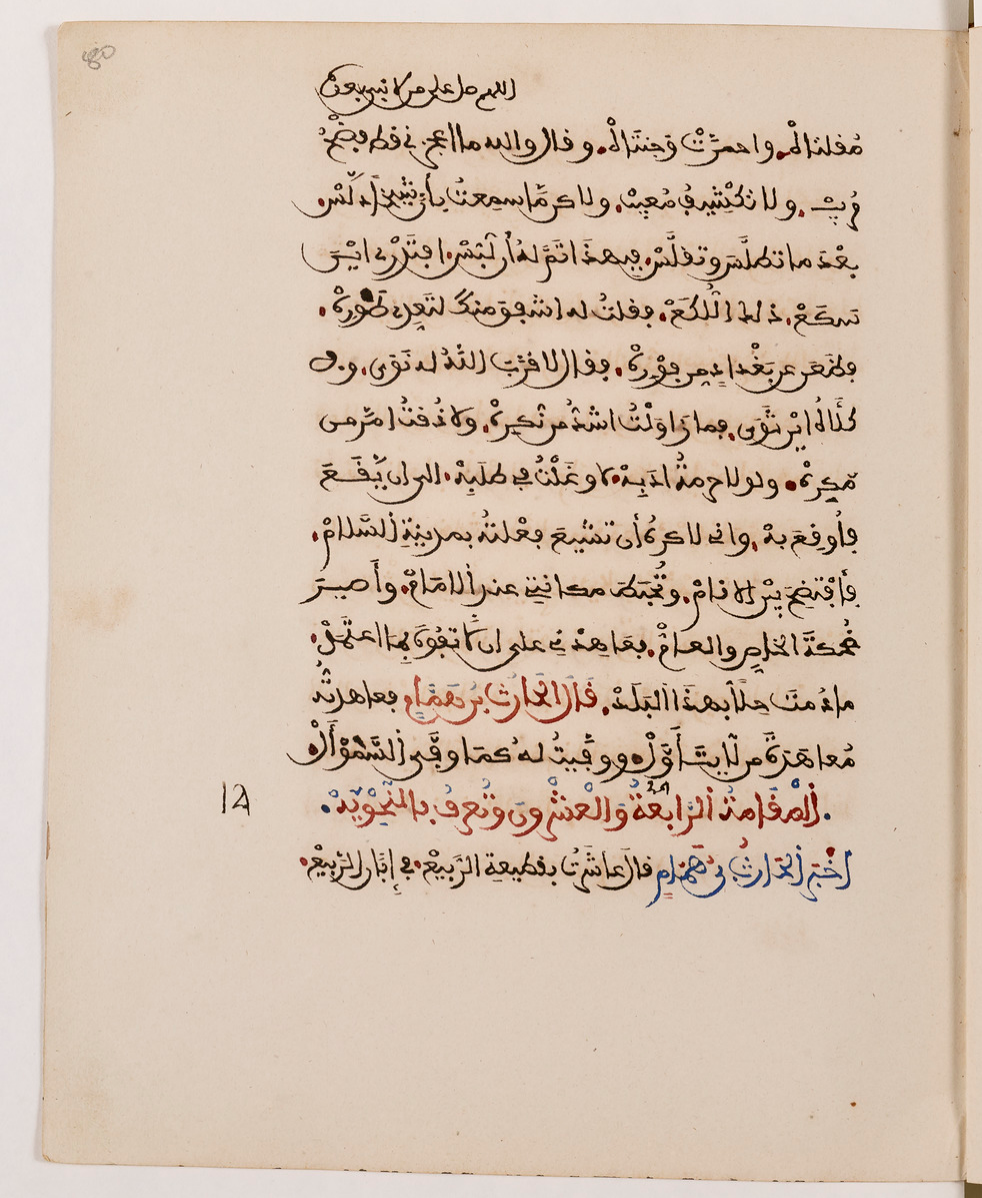 80
اللهم صل على من لا نبي بعده
مُقلتاهْ. واحمرَّتْ وَجْنتَاهْ. وقال والله ما اعجزني قط فضْحُ
مُريبْ. ولا تكْشيفُ مُعيبْ. ولاكن مَّا سمِعتُ بأن شيخاً دلّسْ.
بعْدَ ما تطلَّسَ وتقلَّسْ. فبهذا تمَّ له أن لبّسْ. افتَدْرِى ايْنَ
سكَعْ. ذلك اللُّكَعْ. فقلتُ له اشفق منك لتَعدى طَوْرِهْ.
فظعَن عن بَغْداد من فوْرِهْ. فقال لا قرّبَ اللهُ له نَوى. ولا
كلأهُ ايْن ثَوَى. فما زاوَلْتُ اشدَّ من نُكرِهْ. ولا ذُقتُ امَّر من
مّكرِهْ. ولولا حرمةُ ادَبِهْ. لاوغَلْتُ في طلَبِهْ. الى ان يّقَعَ
فأُوقِعَ بهْ. وانى لاكرهُ أن تشيعَ فعْلتهُ بمدينةِ السَّلامْ.
فأفْتضِحَ بيْن الانامْ. وتُحبَطَ مكانتي عند الامَامْ. وأصيرَ
ضُحكةَ الخاصِ والعامْ. فعاهدَني على ان لا تفُوهَ بما اعتمَدْ.
ما دُمتَ حِلّاً بهذا البَلَدْ. قال الحارثُ بن همّامٍ فعاهدتُّه
مُعاهدَةً من لّا يتَأَوَّلْ. ووفَيتُ له كمَا وفَّى السَّموْأَلْ.
المقامةُ الرّابعةُ والعشرون وتُعرفُ بالنّحْوِيّهْ.
اخْبَر الحارثُ بنُ همّامٍ قال عاشَرْتُ بقطيعةِ الرَّبيعْ. في إبّان الرّبيعْ.